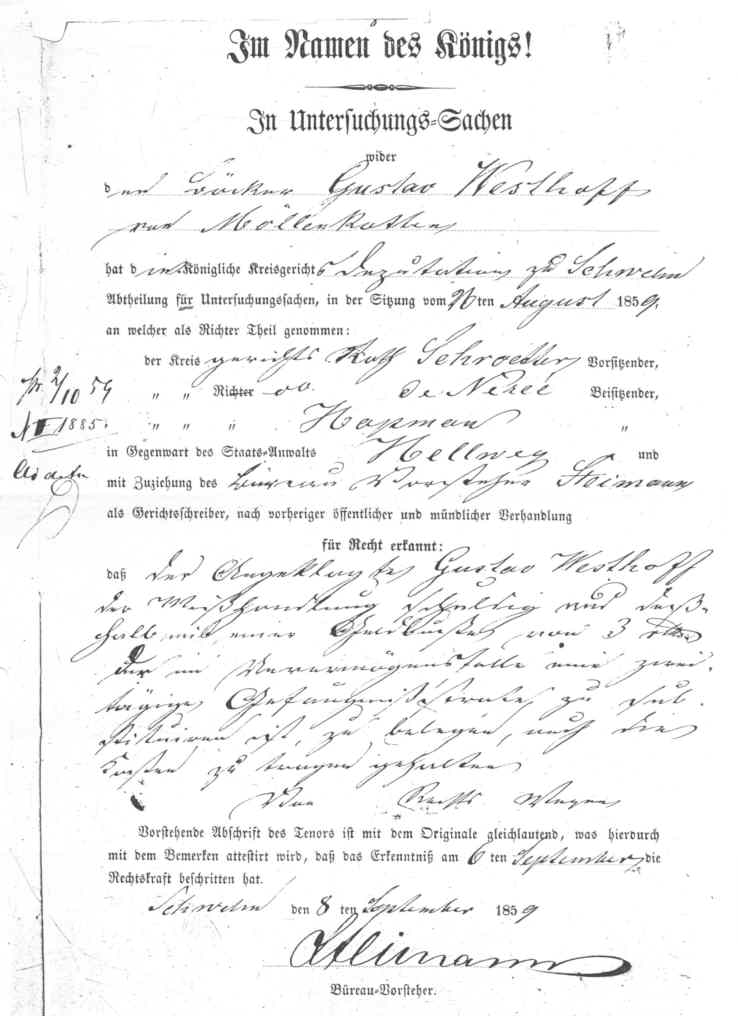 Im Namen des Königs!
In Untersuchungs-Sachen
wider
den Bäcker Gustav Westhoff
von Möllenkotten
hat die Königliche Kreisgerichts Deputation zu Schwelm
Abtheilung für Untersuchungssachen, in der Sitzung vom 26ten August 1859.
an welcher als Richter Theil genommen:
der Kreisgerichts Rath Schroeder Vorsitzender,
" " Richter de Nerée Beisitzender,
" " " Hopman "
2/10 59
1885.
in Gegenwart des Staats-Anwalts Hellweg und
mit Zuziehung des Büreau Vorsteher Steimann
als Gerichtsschreiber, nach vorheriger öffentlicher und mündlicher Verhandlung
für Recht erkannt:
daß der Angeklagte Gustav Westhoff
der Mißhandlung schuldig und deß-
halb mit einer Geldbuße von 3
der im Unvermögensfalle eine zwei-
tägige Gefängnißstrafe zu sub-
stituiren ist, zu belegen, auch die
Kosten zu tragen gehalten
Von Rechts Wegen
Vorstehende Abschrift des Tenors ist mit dem Originale gleichlautend, was hierdurch
mit dem Bemerken attestirt wird, daß das Erkenntniß am 6ten September die
Rechtskraft beschritten hat.
Schwelm den 8ten September 1859
Steimann
Büreau-Vorsteher.